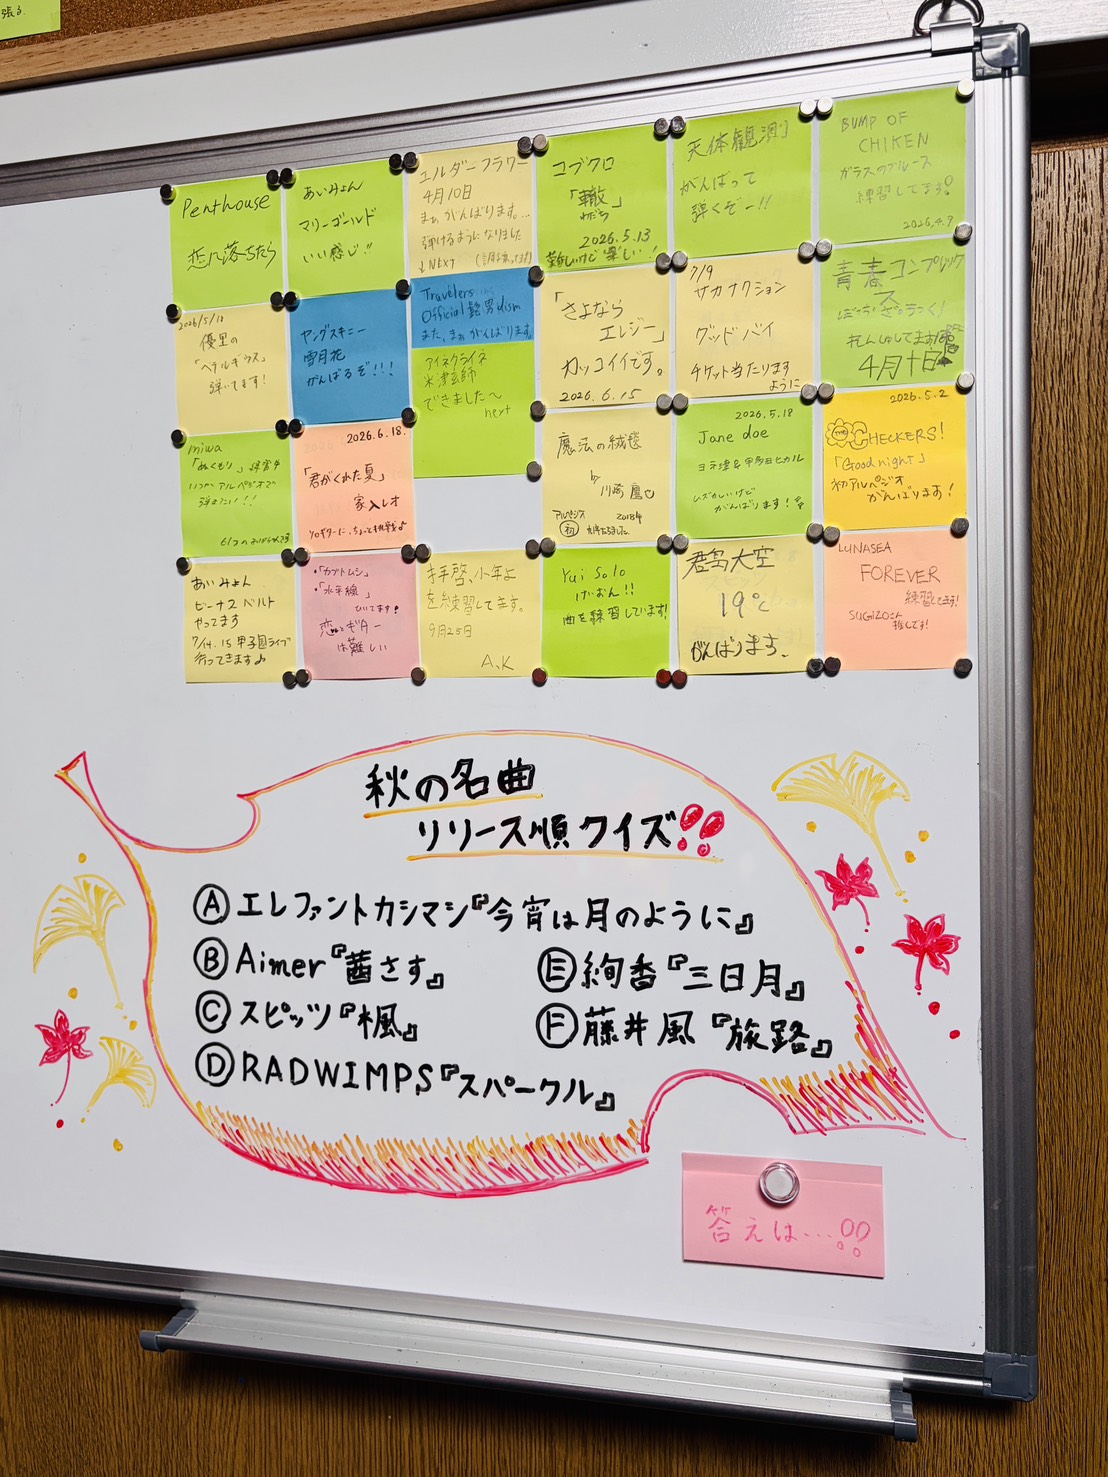 張る。
Penthouse
恋に落ちたら
あいみょん
マリーゴールド
いい感じ!!
エルダーフラワー
4月10日
まぁがんばります。...
弾けるようになりました
↓NEXT
コブクロ
「轍」
わだち
2026.5.13
難しいけど楽しい!
天体観測
がんばって
弾くぞー!!
BUMP OF
CHIKEN
ガラスのブルース
練習してます!
2026.4.9
2026/5/18
優里の
「ベテルギウス」
弾いてます!
ヤングスキニー
雪月花
がんばるぞ!!!
Travelers
Official髭男dism
また、まぁがんばります。
アイネクライネ
米津玄師
できました〜
next
「さよなら
エレジー」
カッコイイです。
2026.6.15
7/9
サカナクション
グッドバイ
チケット当たります
ように
青春コンプレック
ス
4月十日
miwa
「ぬくもり」練習中
いつかアルペジオで
弾きたい!!
2026.6.18.
「君がくれた夏」
家入レオ
魔法の絨毯
by
川崎鷹也
初
2026.5.18
Jane doe
米津玄師&宇多田ヒカル
ムズかしいけど
がんばります!
2026.5.2
CHECKERS!
「Good night」
初アルペジオ
がんばります!
あいみょん
ビーナスベルト
やってます
7/14.15 甲子園ライブ
行ってきます♪
・「カブトムシ」
・「水平線」
ひいてます!
恋とギター
は難しい
拝啓、少年よ
を練習してます。
9月25日
A.K
Yui Solo
けいおん!!
曲を練習しています!
群青大空
19℃
がんばります.
LUNASEA
FOREVER
練習してます!
SUGIZOさん
推しです!
秋の名曲
リリース順クイズ!!
Ⓐエレファントカシマシ『今宵は月のように』
Ⓑ Aimer『茜さす』
Ⓒスピッツ『楓』
Ⓓ RADWIMPS『スパークル』
Ⓔ絢香『三日月』
Ⓕ藤井風『旅路』
答えは...!!